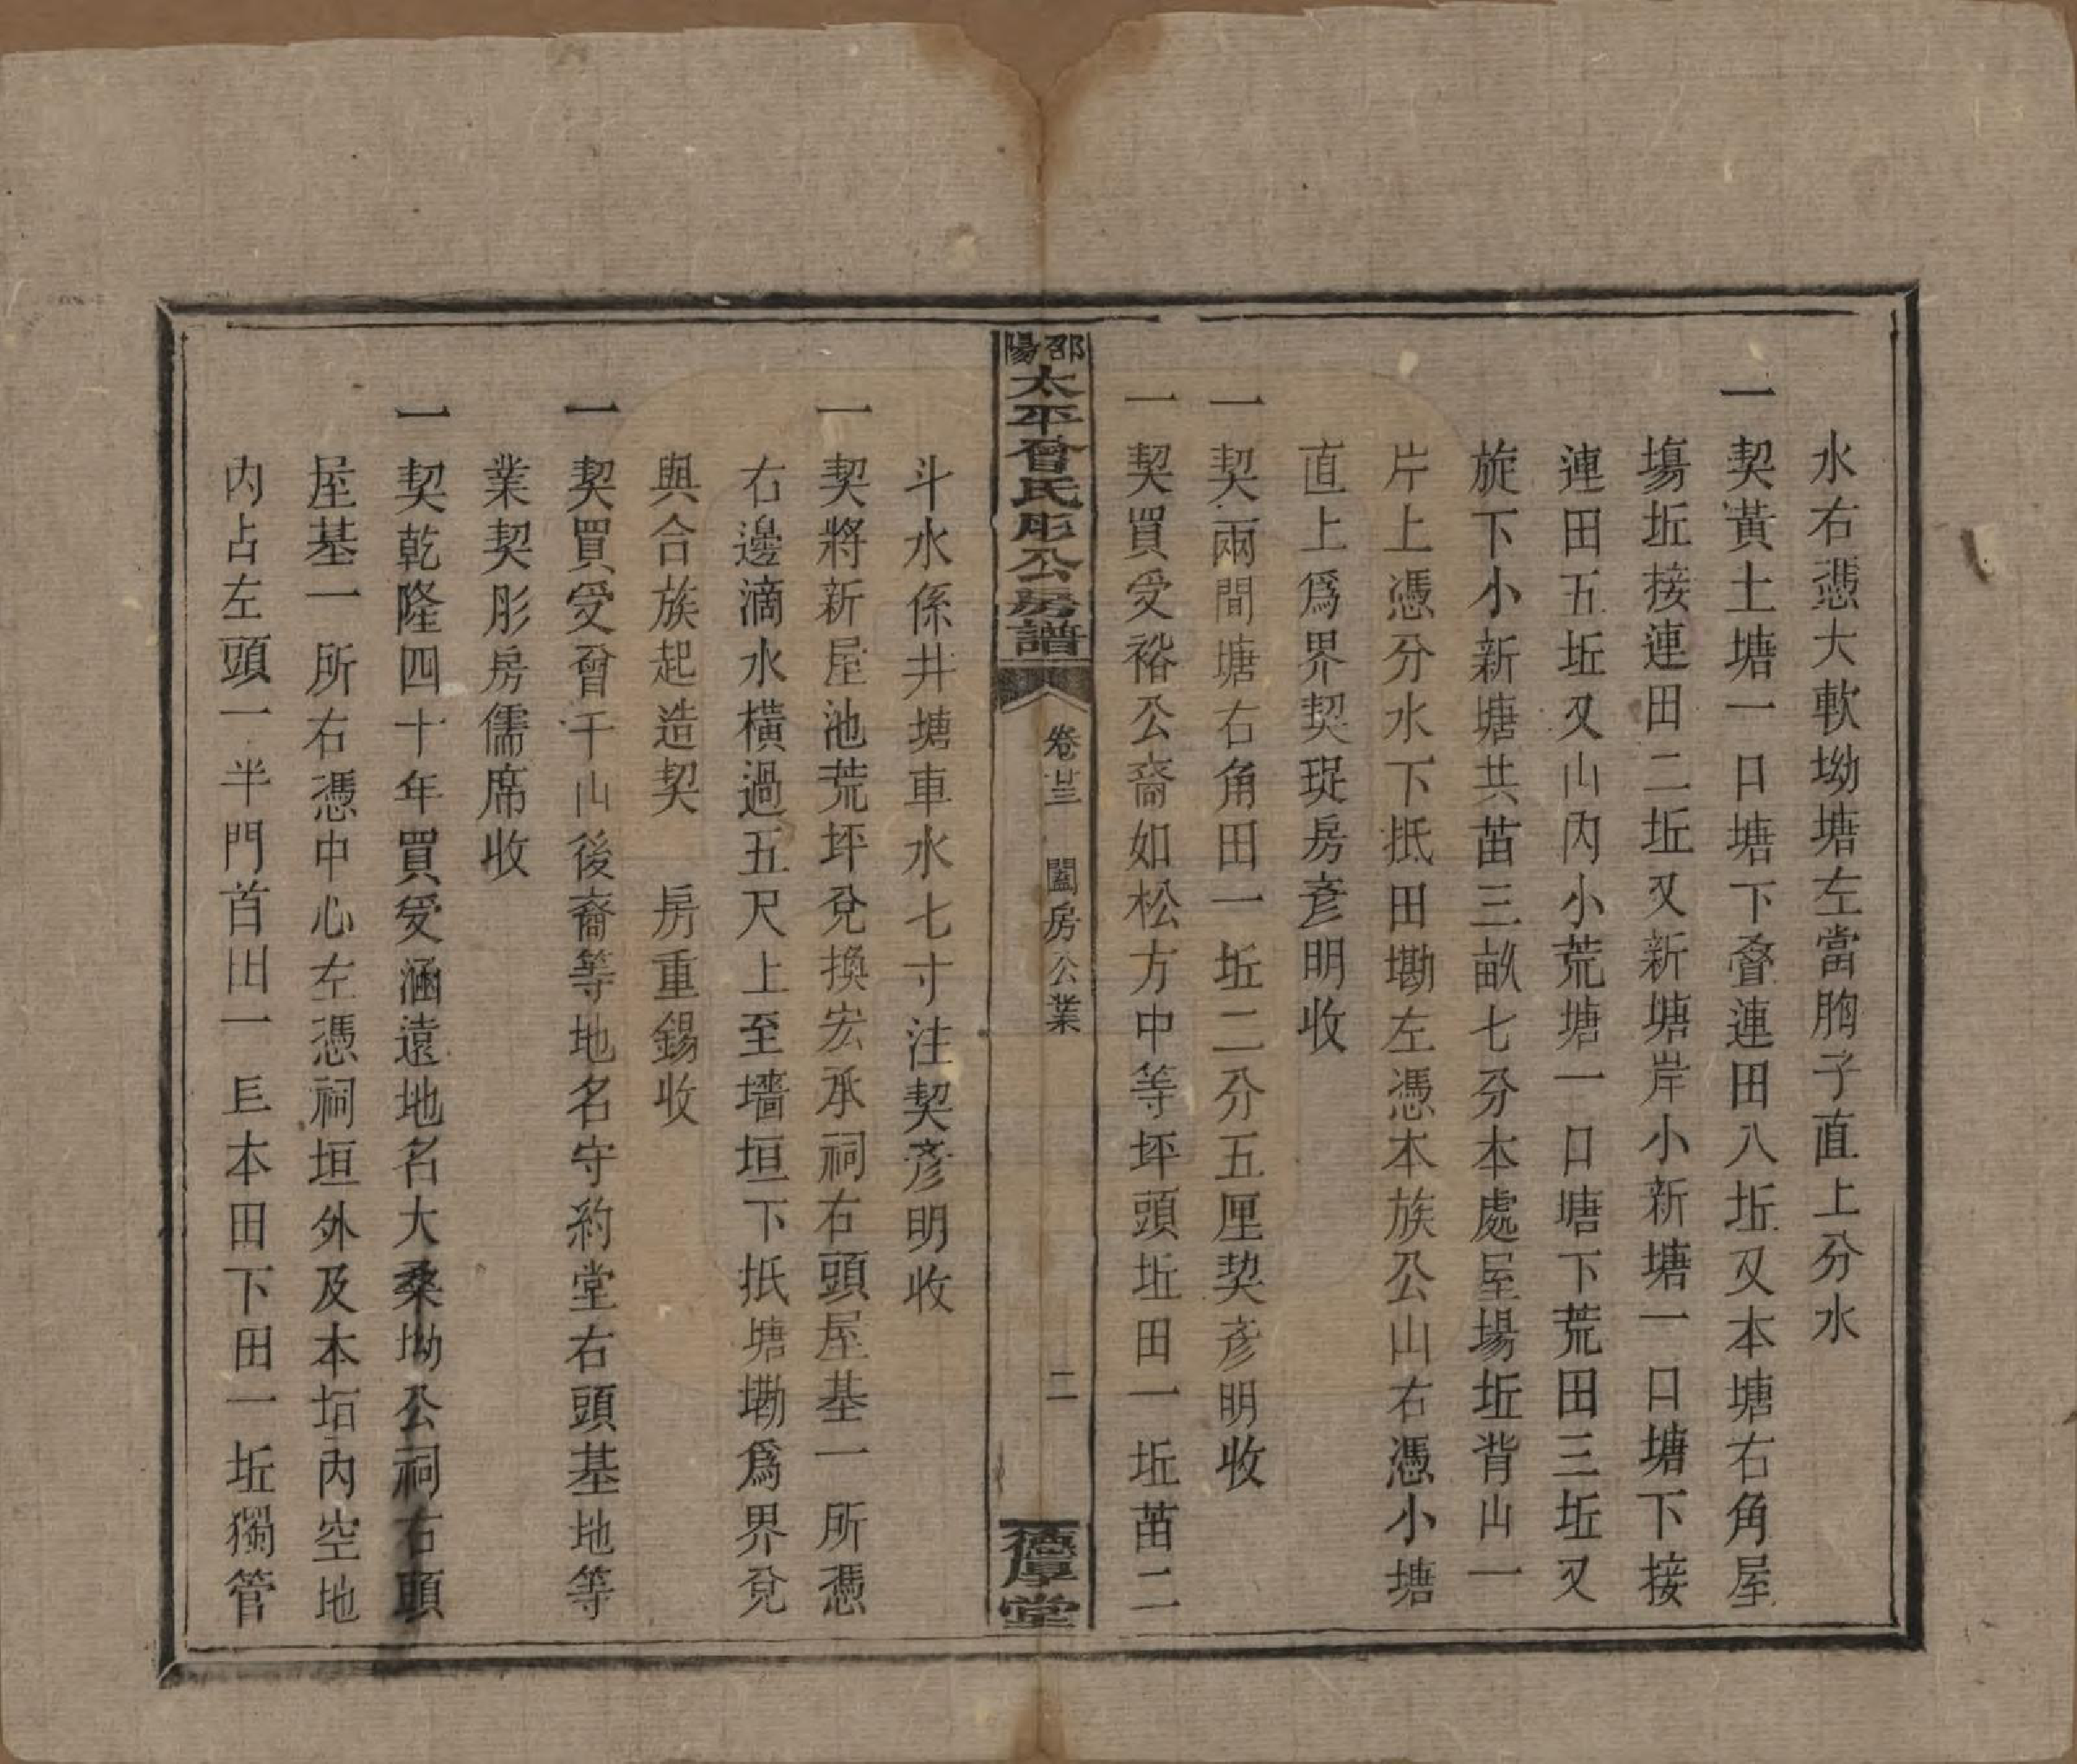 水右憑大軟坳塘左當胸子直上分水
一契黃土塘一口塘下叠連田八坵又本塘右角屋
塲坵接連田二坵又新塘岸小新塘一口塘下接
連田五坵又山內小荒塘一口塘下荒田三坵又
旋下小新塘共苗三畝七分本處屋塲坵背山一
片上憑分水下抵田墈左憑本族公山右憑小塘
直上爲界契琔房彥明收
一契兩間塘右角田一坵二分五厘契彥明收
一契買受裕公裔如松方中等坪頭坵田一坵苗二
邵陽太平曾氏彤公房譜 卷廿三 闔房公業 二 德厚堂
斗水係井塘車水七寸注契彥明收
一契將新屋池荒坪兌換宏承祠右頭屋基一所憑
右邊滴水橫過五尺上至墻垣下抵塘墈爲界兌
與合族起造契 房重錫收
一契買受曾千山後裔等地名守約堂右頭基地等
業契彤房儒席收
一契乾隆四十年買受涵遠地名大桑坳公祠右頭
屋基一所右憑中心左憑祠垣外及本垢內空地
內占左頭一半門首田一𠀋本田下田一坵獨管